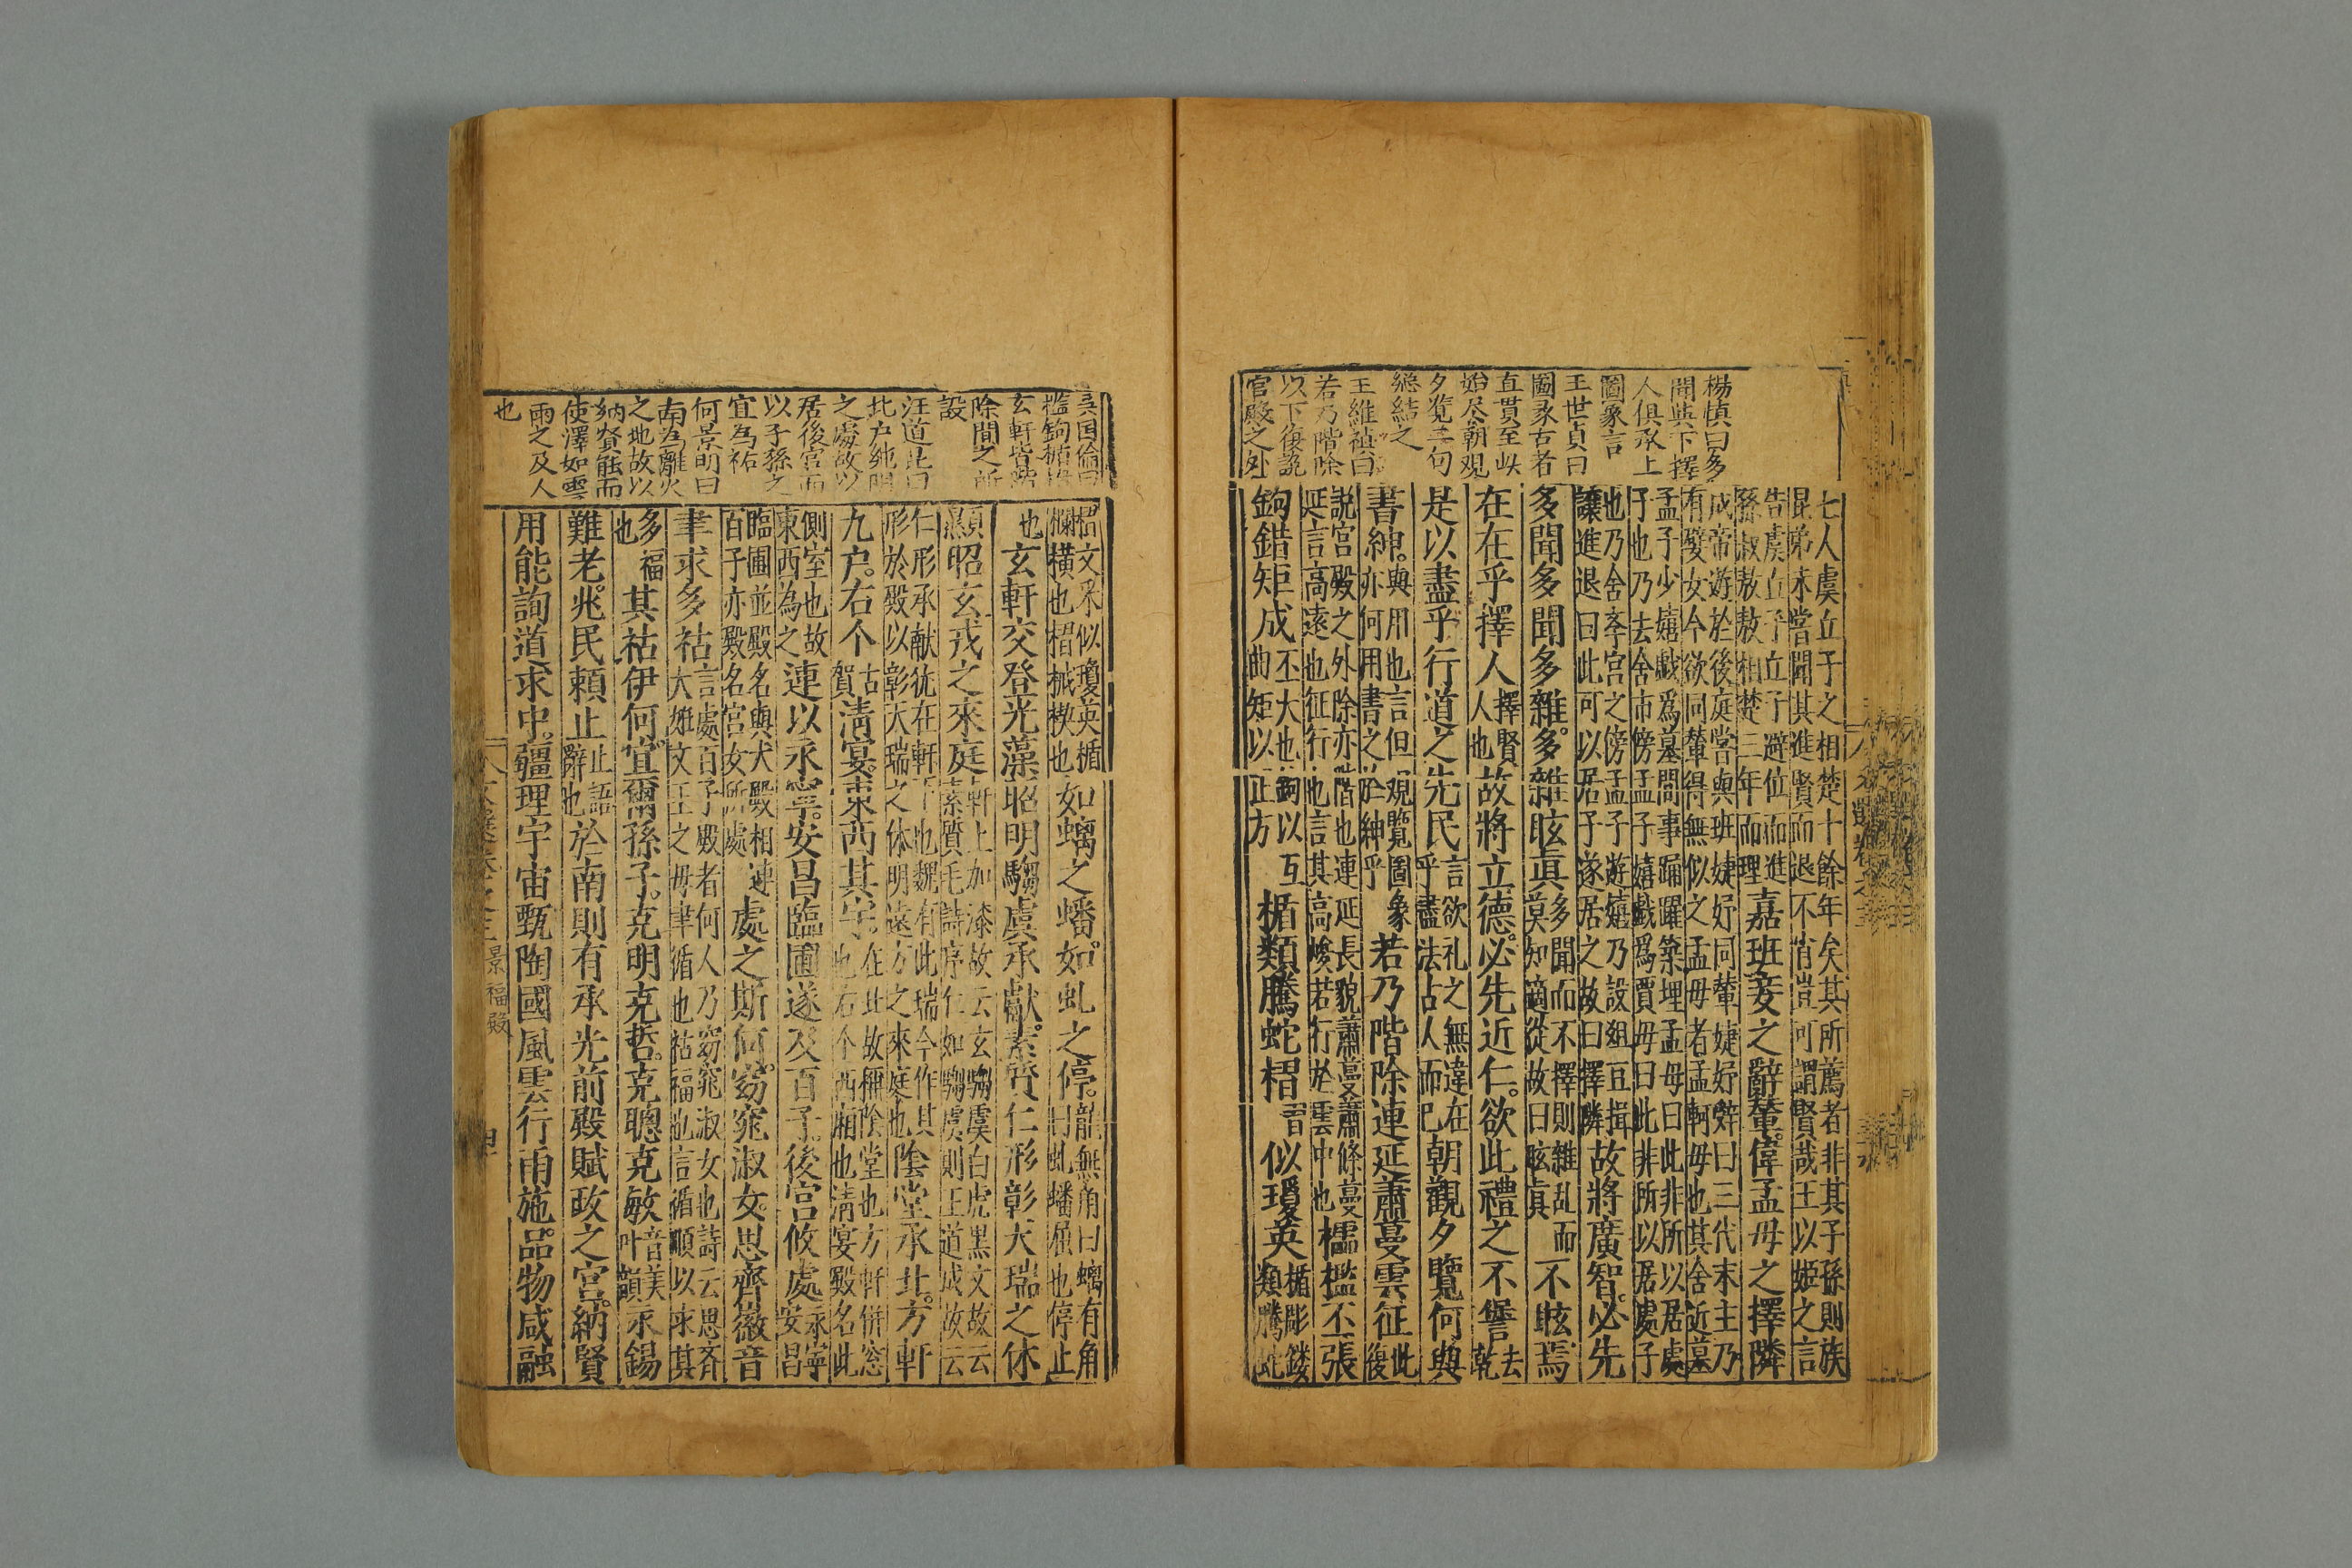 楊慎曰多
聞與下擇
人俱承上
圖象言
王世貞曰
圖象古者
直貫至此
始尽朝觀
夕覽二句
總結之
王維禎曰
若乃階除
以下復説
宫殿之外
七人虞丘子之相楚十餘年矣其所薦者非其子孫則族
昆弟未嘗聞其進賢而退不肖豈可謂賢哉王以姬之言
告虞丘子丘子避位而進
孫叔敖敖相楚三年而理
嘉班妾之辭輦。偉孟母之擇隣
成帝遊於後庭嘗與班婕妤同輦婕妤辝曰三代末主乃
有嬖女今欲同輦得無似之孟母者孟軻母也其舍近墓
孟子少嬉戲爲墓間事踊躍築埋孟母曰此非所以居處
子也乃去舍市傍孟子嬉戲爲賈母曰此非所以居處子
也乃舍斈宮之傍孟子遊嬉乃設俎豆揖
讓進退曰此可以居子遂居之故曰擇隣
故將廣智。必先
多聞多聞多雜。多雜眩真
多聞而不擇則雜乱而
莫知適從故曰眩真
不眩焉
在在乎擇人
擇賢
人也
故將立德。必先近仁。欲此禮之不諐
去
乾
是以盡乎行道之先民
言欲礼之無違在
乎盡法古人而已
朝觀夕覽何與
書紳。
與用也言但觀覽圖象
亦何用書之於紳乎
若乃階除連延蕭蔓雲征
此
復
説宮殿之外除亦階也連延長貌蕭蔓蕭條蔓
延言高遠也征行也言其高峻若行於雲中也
櫺檻丕張
鉤錯矩成
丕大也鉤以互
曲矩以正方
楯類騰蛇槢
音
習
似瓊英
楯彫鏤
類騰蛇
吳国倫曰
檻鉤楯槢
玄軒皆階
除間之所
設
汪道昆曰
北户純陰
之處故以
居後宮而
以子孫之
宜為祐
何景明曰
南為離火
之地故以
納賢能而
使澤如雲
雨之及人
也
槢文采似瓊英楯
欄橫也槢械楔也
如螭之蟠。如虬之停。
龍無角曰螭有角
曰虬蟠屈也停止
也
玄軒交登光藻昭明騶虞承獻。素質仁形彰天瑞之休
顯昭玄戎之來庭
軒上加漆故云玄騶虞白虎黑文故云
素質毛詩序仁如騶虞則王道成故云
仁形承献犹在軒下也魏有此瑞今作其
形於殿以彰天瑞之休明遠方之來庭也
陰堂承北。方軒
九户。右个
古
賀
清宴。東西其宇
在北故稱陰堂也方軒併窓
也右个西廂也清宴殿名此
側室也故
東西為之
連以永寧。安昌臨圃遂及百子。後宮攸處
永寧
安昌
臨圃並殿名與犬殿相連
百子亦殿名宮女所處
處之斯何。窈窕淑女。思齊徽音
聿求多祜
言處百子殿者何人乃窈窕淑女也詩云思齐
大姙文王之母聿循也祜福也言循順以求其
多福
也
其祜伊何。宜爾孫子。克明克哲。克聰克敏
音美
叶韻
永錫
難老。兆民賴止
止語
辭也
於南則有承光前殿賦政之宮。納賢
用能詢道求中。疆理宇宙甄陶國風雲行雨施。品物咸融
景福殿